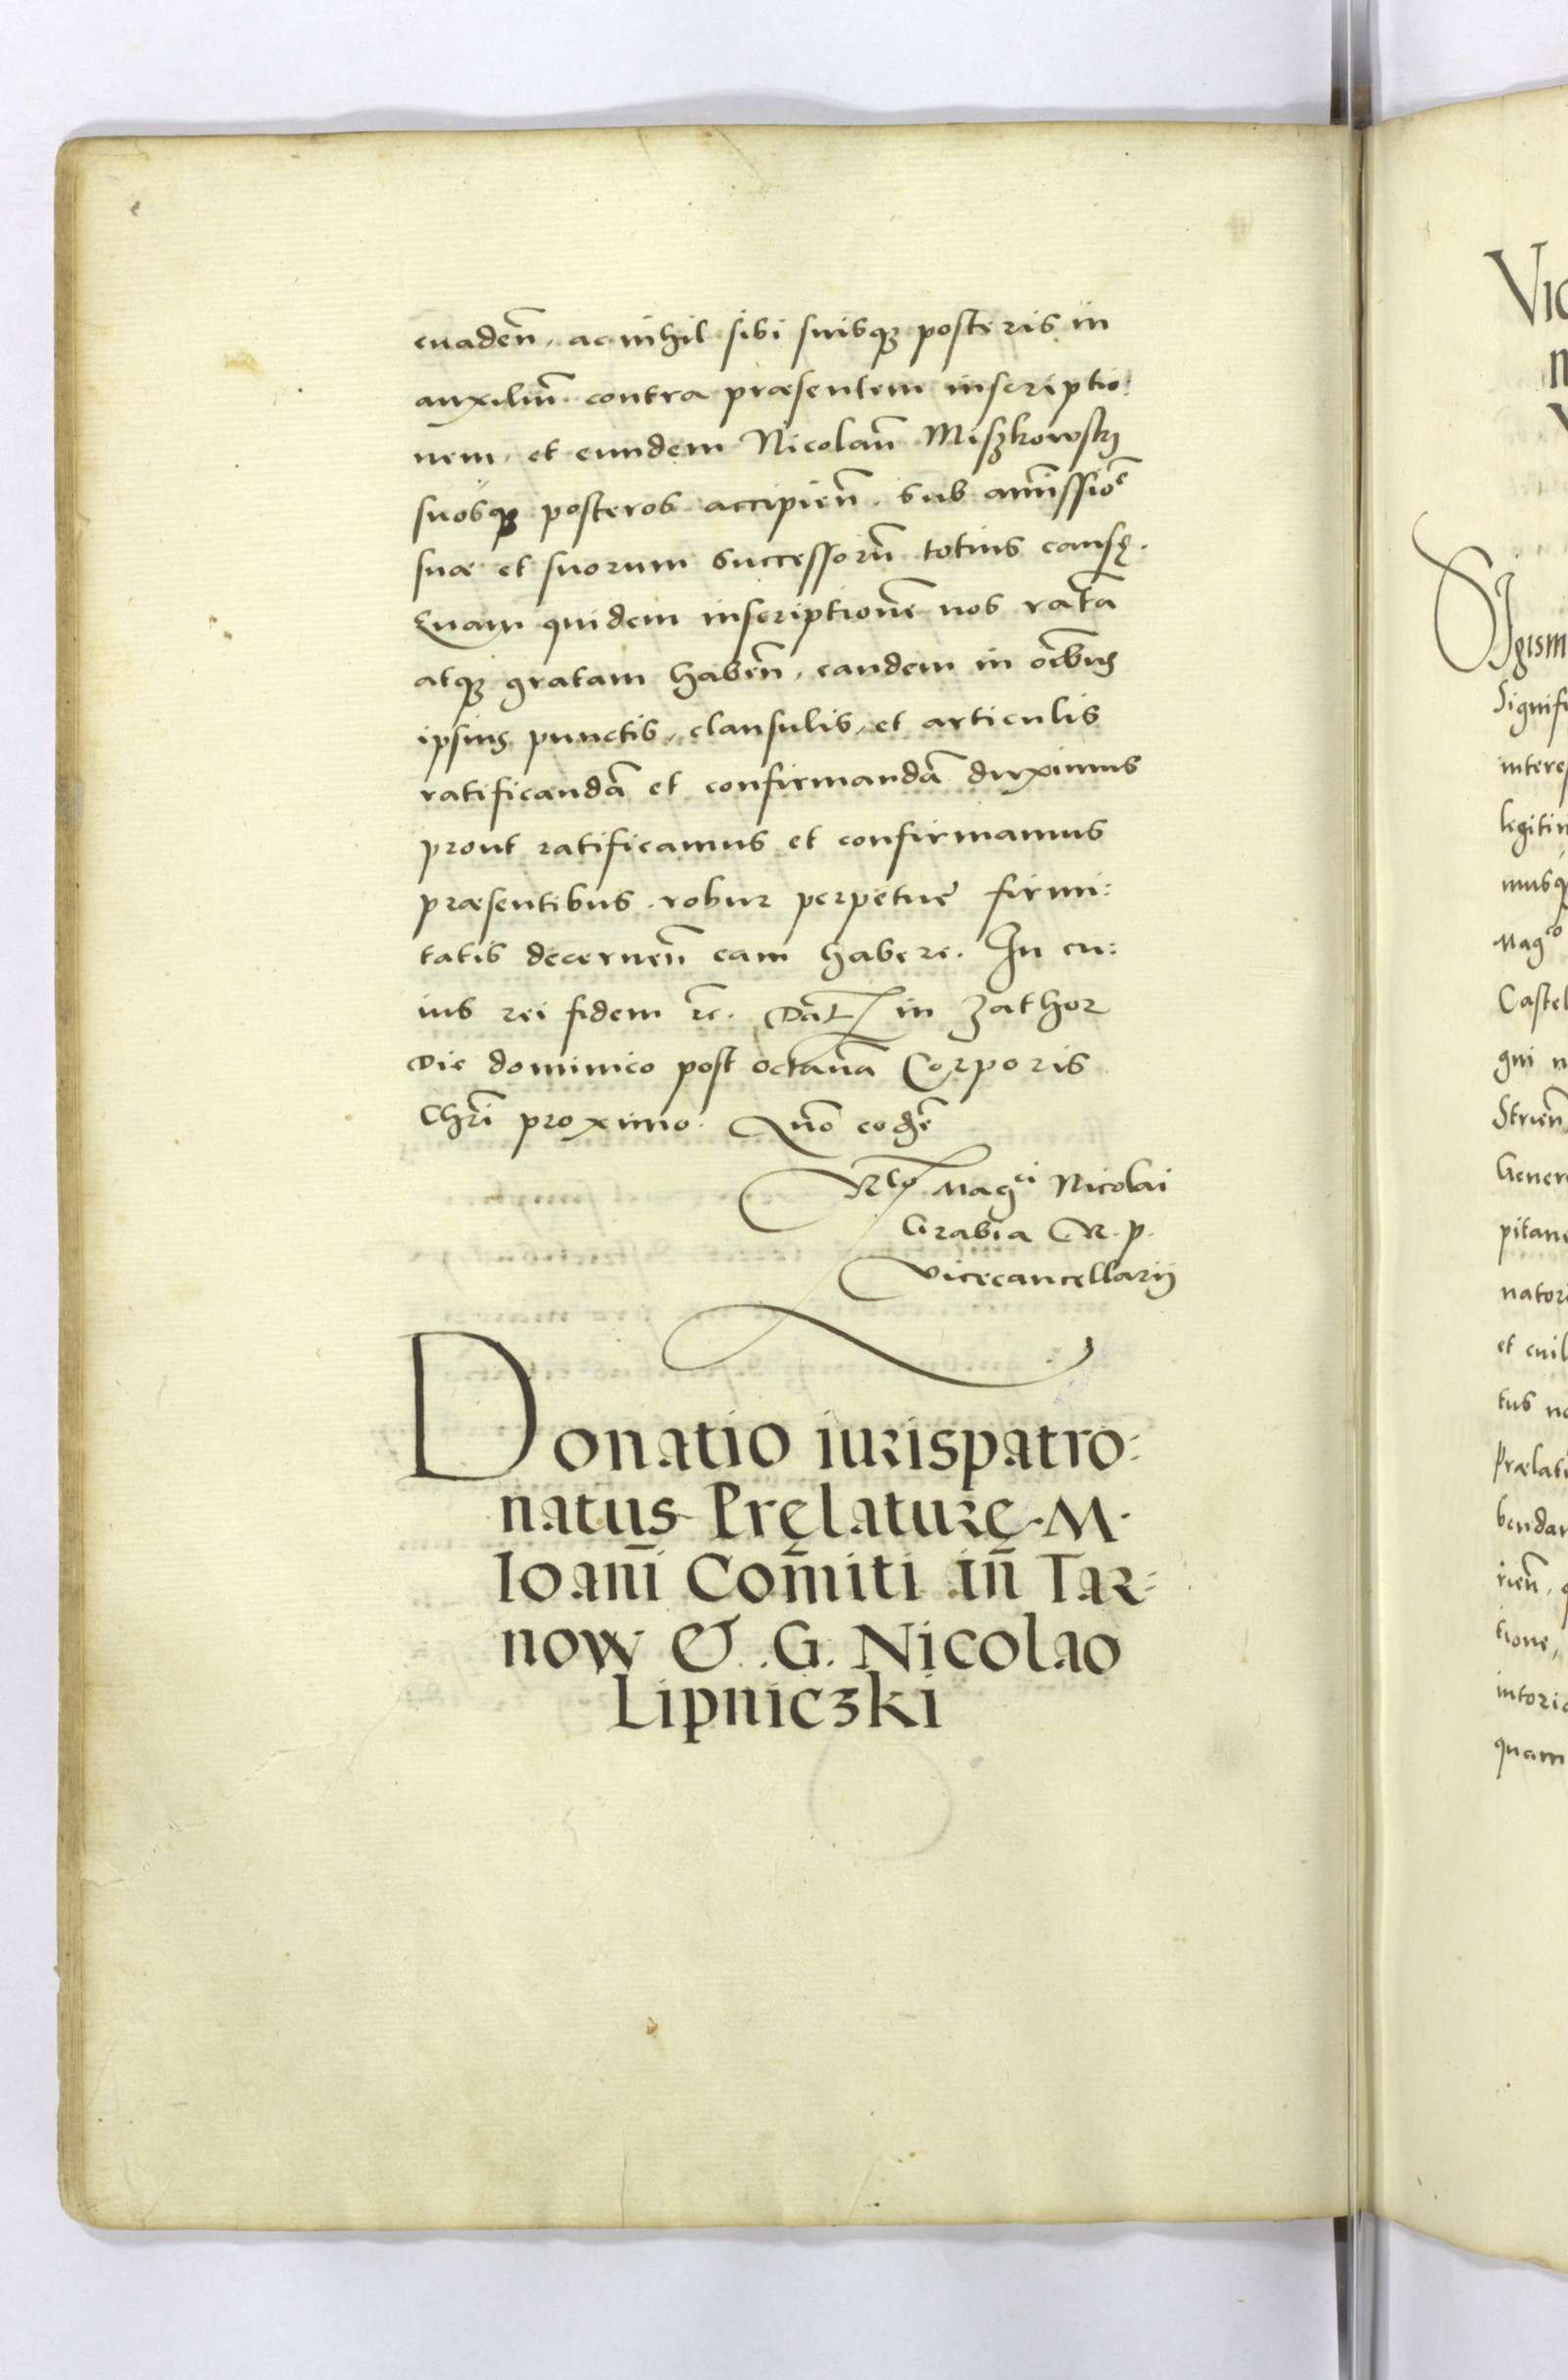 euadeñ, ac nihil sibi suisqꝫ posteris in
auxiliū contra præsentem inscriptio:
nem, et eundem Nicolaū Miszkowskÿ
suosqꝫ posteros accipieñ. sub amissiōe
suæ et suorum successorū totius causę.
Quam quidem inscriptionē nos ratā
atqꝫ gratam habeñ, eandem in oībus
ipsius punctis, clausulis, et articulis
ratificandā et confirmandā duximus
prout ratificamus et confirmamus
præsentibus. robur perpetuę firmi:
tatis decerneñ eam habere. In cu:
ius rei fidem rc. Dat in Zathor
Die dominico post octauā Corporis
Chrī proximo. Quo eodē
Rlo Magci Nicolai
Grabia R. p.
Vicecancellarij
Donatio iurispatro:
natus Pręlaturę M.
Ioani Comiti in Tar:
now & G. Nicolao
Lipniczki
Vic
Sigism
Signifi
interes
legitim
musq
Magco
Castel
gni n
Strieñ
Genero
pitane
natore
et cuil
tus no
Prælat
bendar
rieñ, q
tione,
intoric
quam